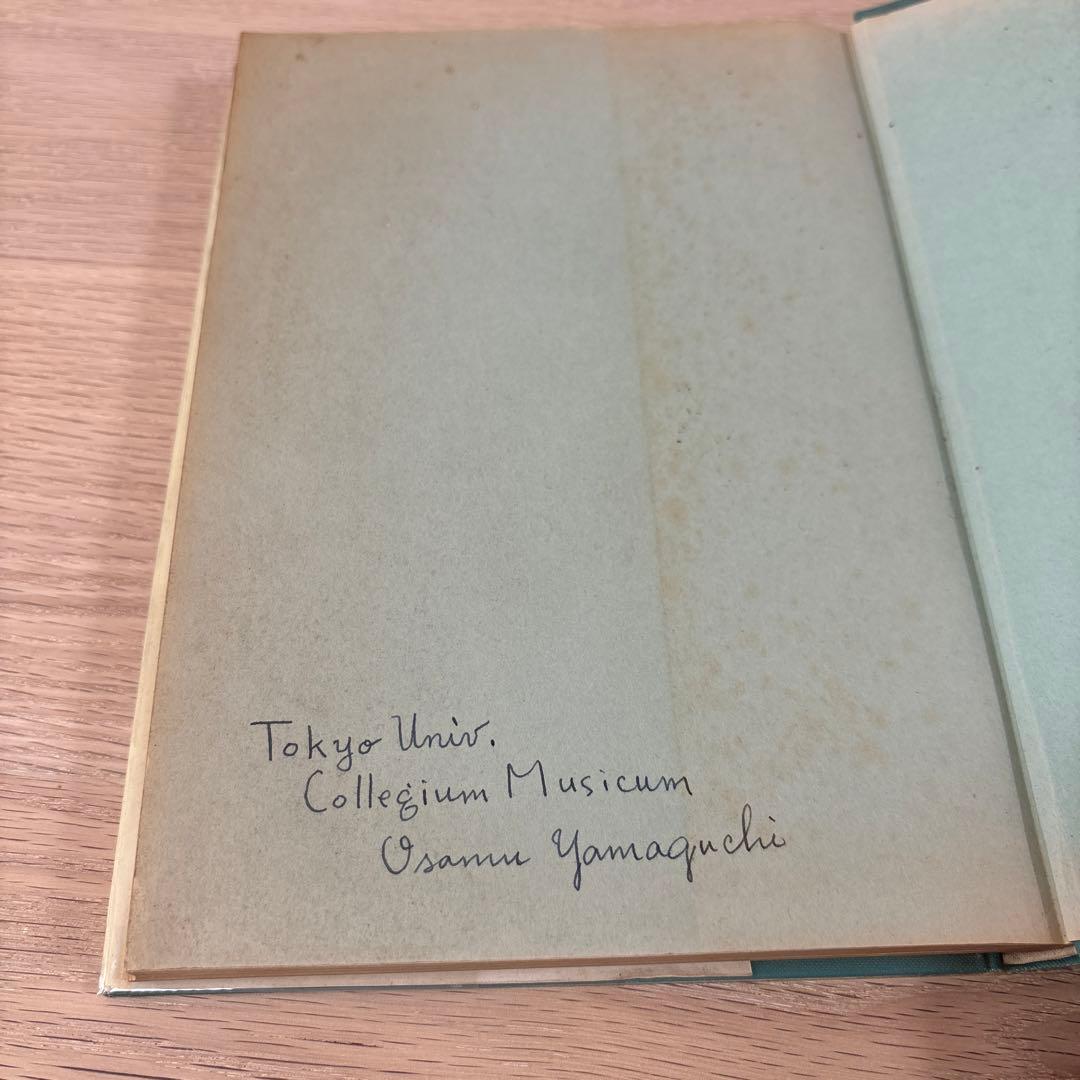 Tokyo Univ.
Collegium Musicum
Osamu Yamaguchi